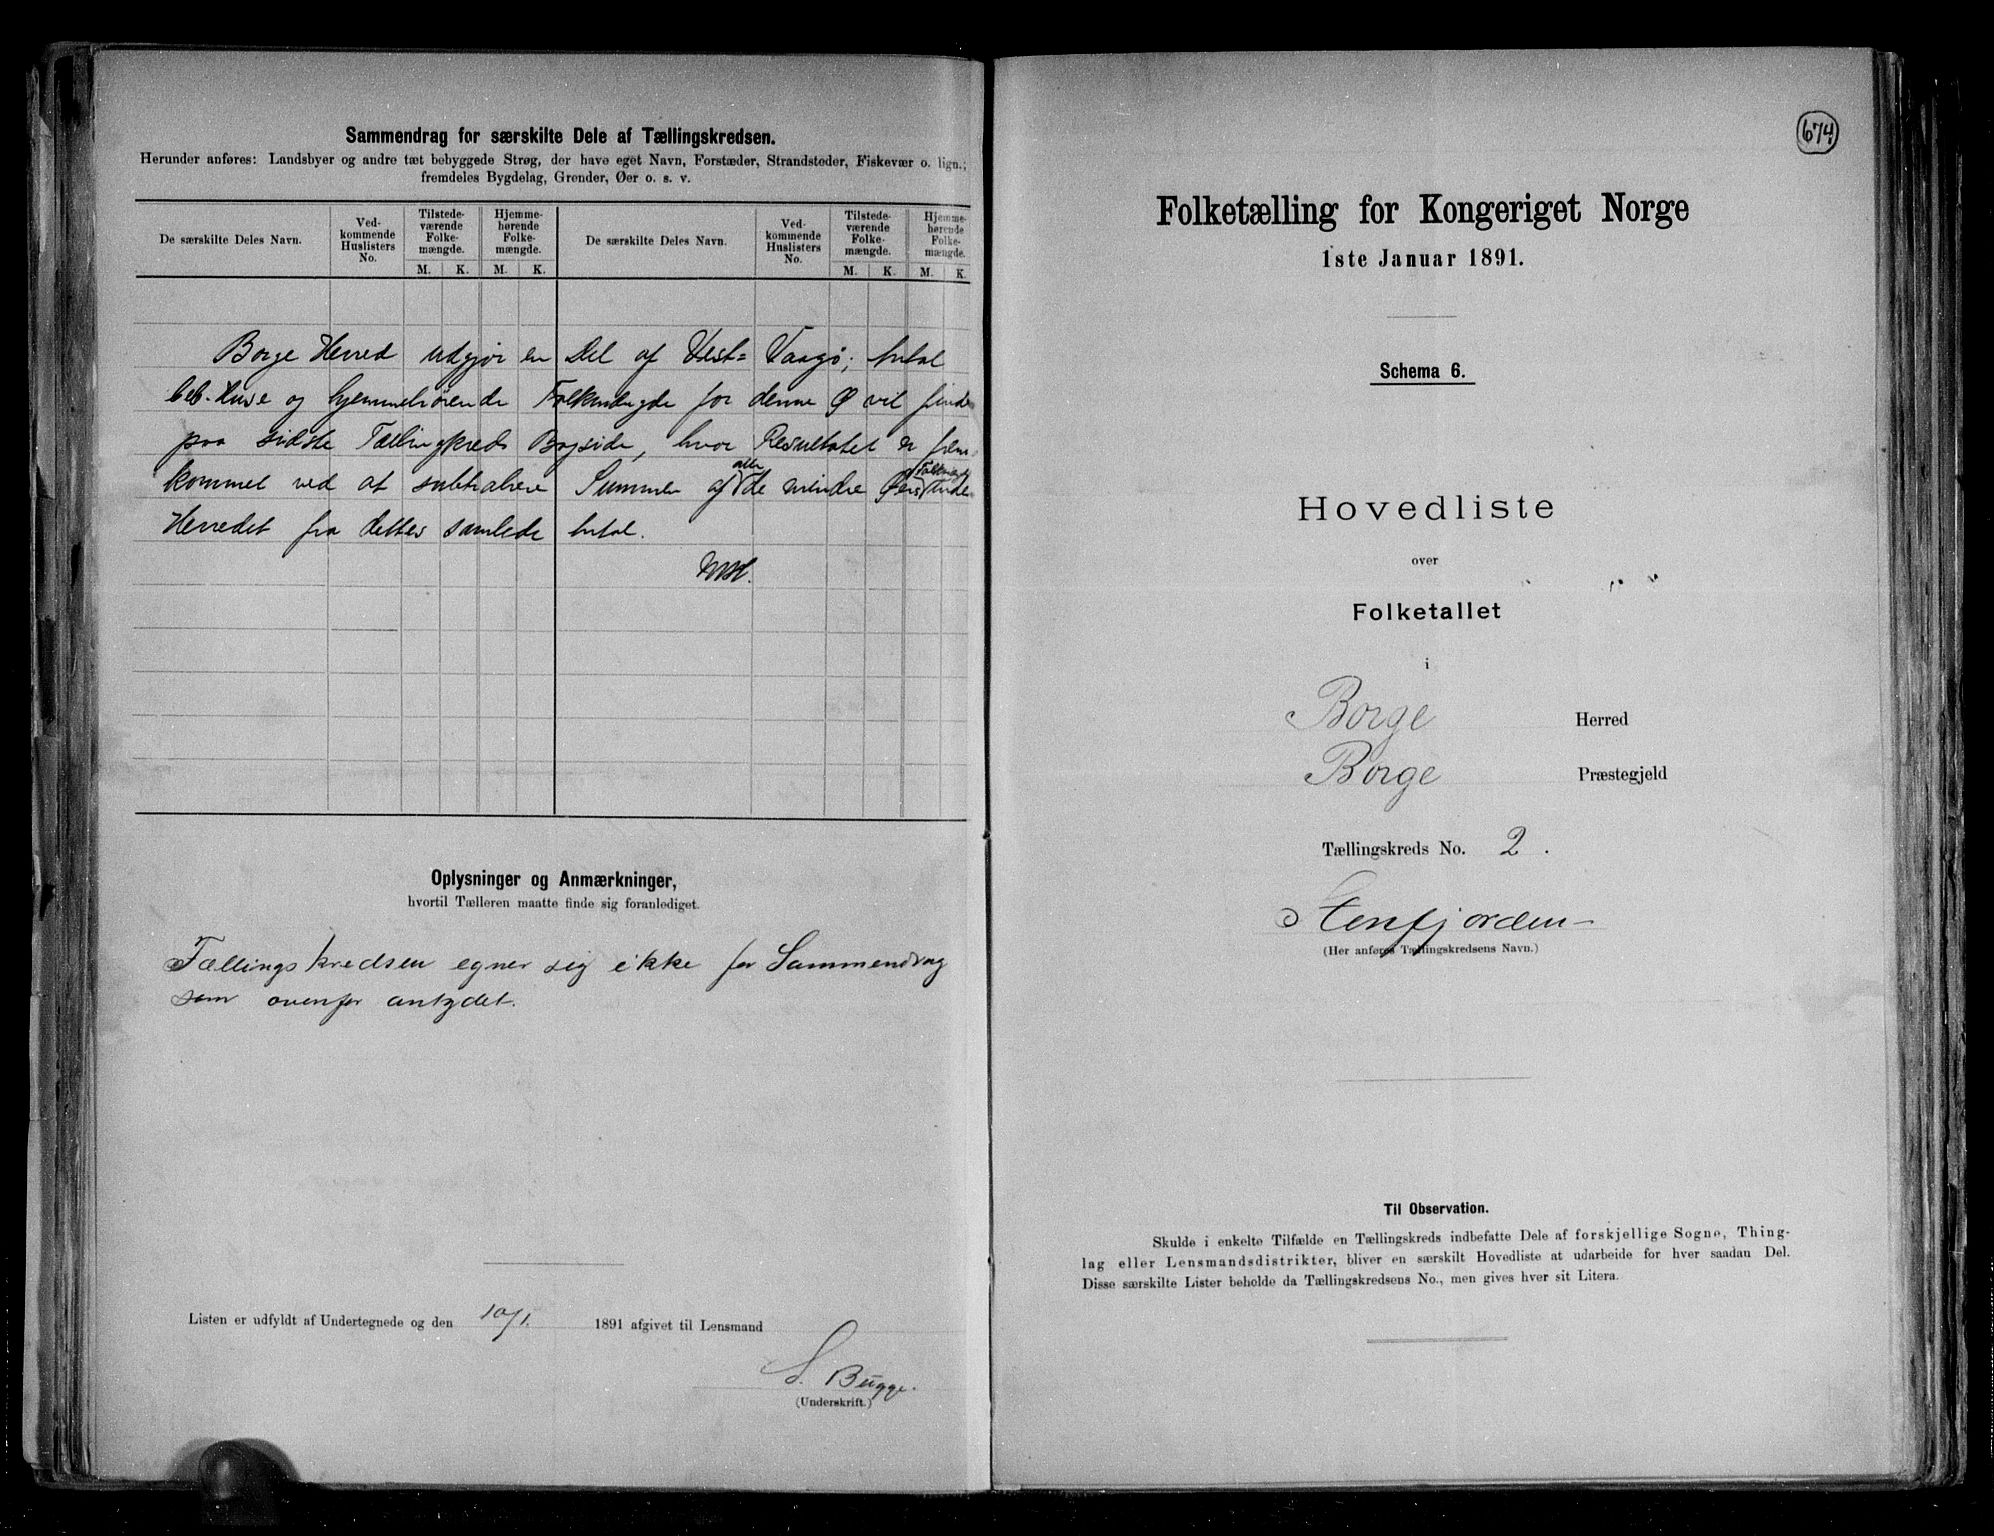 Sammendrag for særskilte Dele af Tællingskredsen.
Herunder anføres: Landsbyer og andre tæt bebyggede Strøg, der have eget Navn, Forstæder, Strandsteder, Fiskevær o. lign.;
fremdeles Bygdelag, Grender, Øer o. s. v.
De særskilte Deles Navn.
Ved-
kommende
Huslisters
No.
Tilstede-
værende
Folke-
mængde.
M. K.
Hjemme-
hørende
Folke-
mængde.
M. K.
De særskilte Deles Navn.
Ved-
kommende
Huslisters
No.
Tilstede-
værende
Folke-
mængde.
M. K.
Hjemme-
hørende
Folke-
mængde.
M. K.
Borge Herred udgjør en Del af Vest= Vaagø; Antal
beb. Huse og hjemmehørende Folkmængde for denne Ø vil findes
paa sidste Tællingkreds Bagside, hvor Resultatet er frem-
kommet ved at subtrahere Summen af alle de mindre Øers
Herredet fra dettes samlede Antal.
Oplysninger og Anmærkninger,
hvortil Tælleren maatte finde sig foranlediget.
Tællingskredsen egner sig ikke for Sammendrag
som ovenfor antydet.
Listen er udfyldt af Undertegnede og den 10/1. 1891 afgivet til Lensmand
S. Bugge.
(Underskrift.)
674
Folketælling for Kongeriget Norge
1ste Januar 1891.
Schema 6.
Hovedliste
over
Folketallet
i
Borge Herred
Borge Præstegjeld
Tællingskreds No. 2.
Stenfjorden
(Her anføres Tællingskredsens Navn.)
Til Observation.
Skulde i enkelte Tilfælde en Tællingskreds indbefatte Dele af forskjellige Sogne, Thing-
lag eller Lensmandsdistrikter, bliver en særskilt Hovedliste at udarbeide for hver saadan Del.
Disse særskilte Lister beholde da Tællingskredsens No., men gives hver sit Litera.